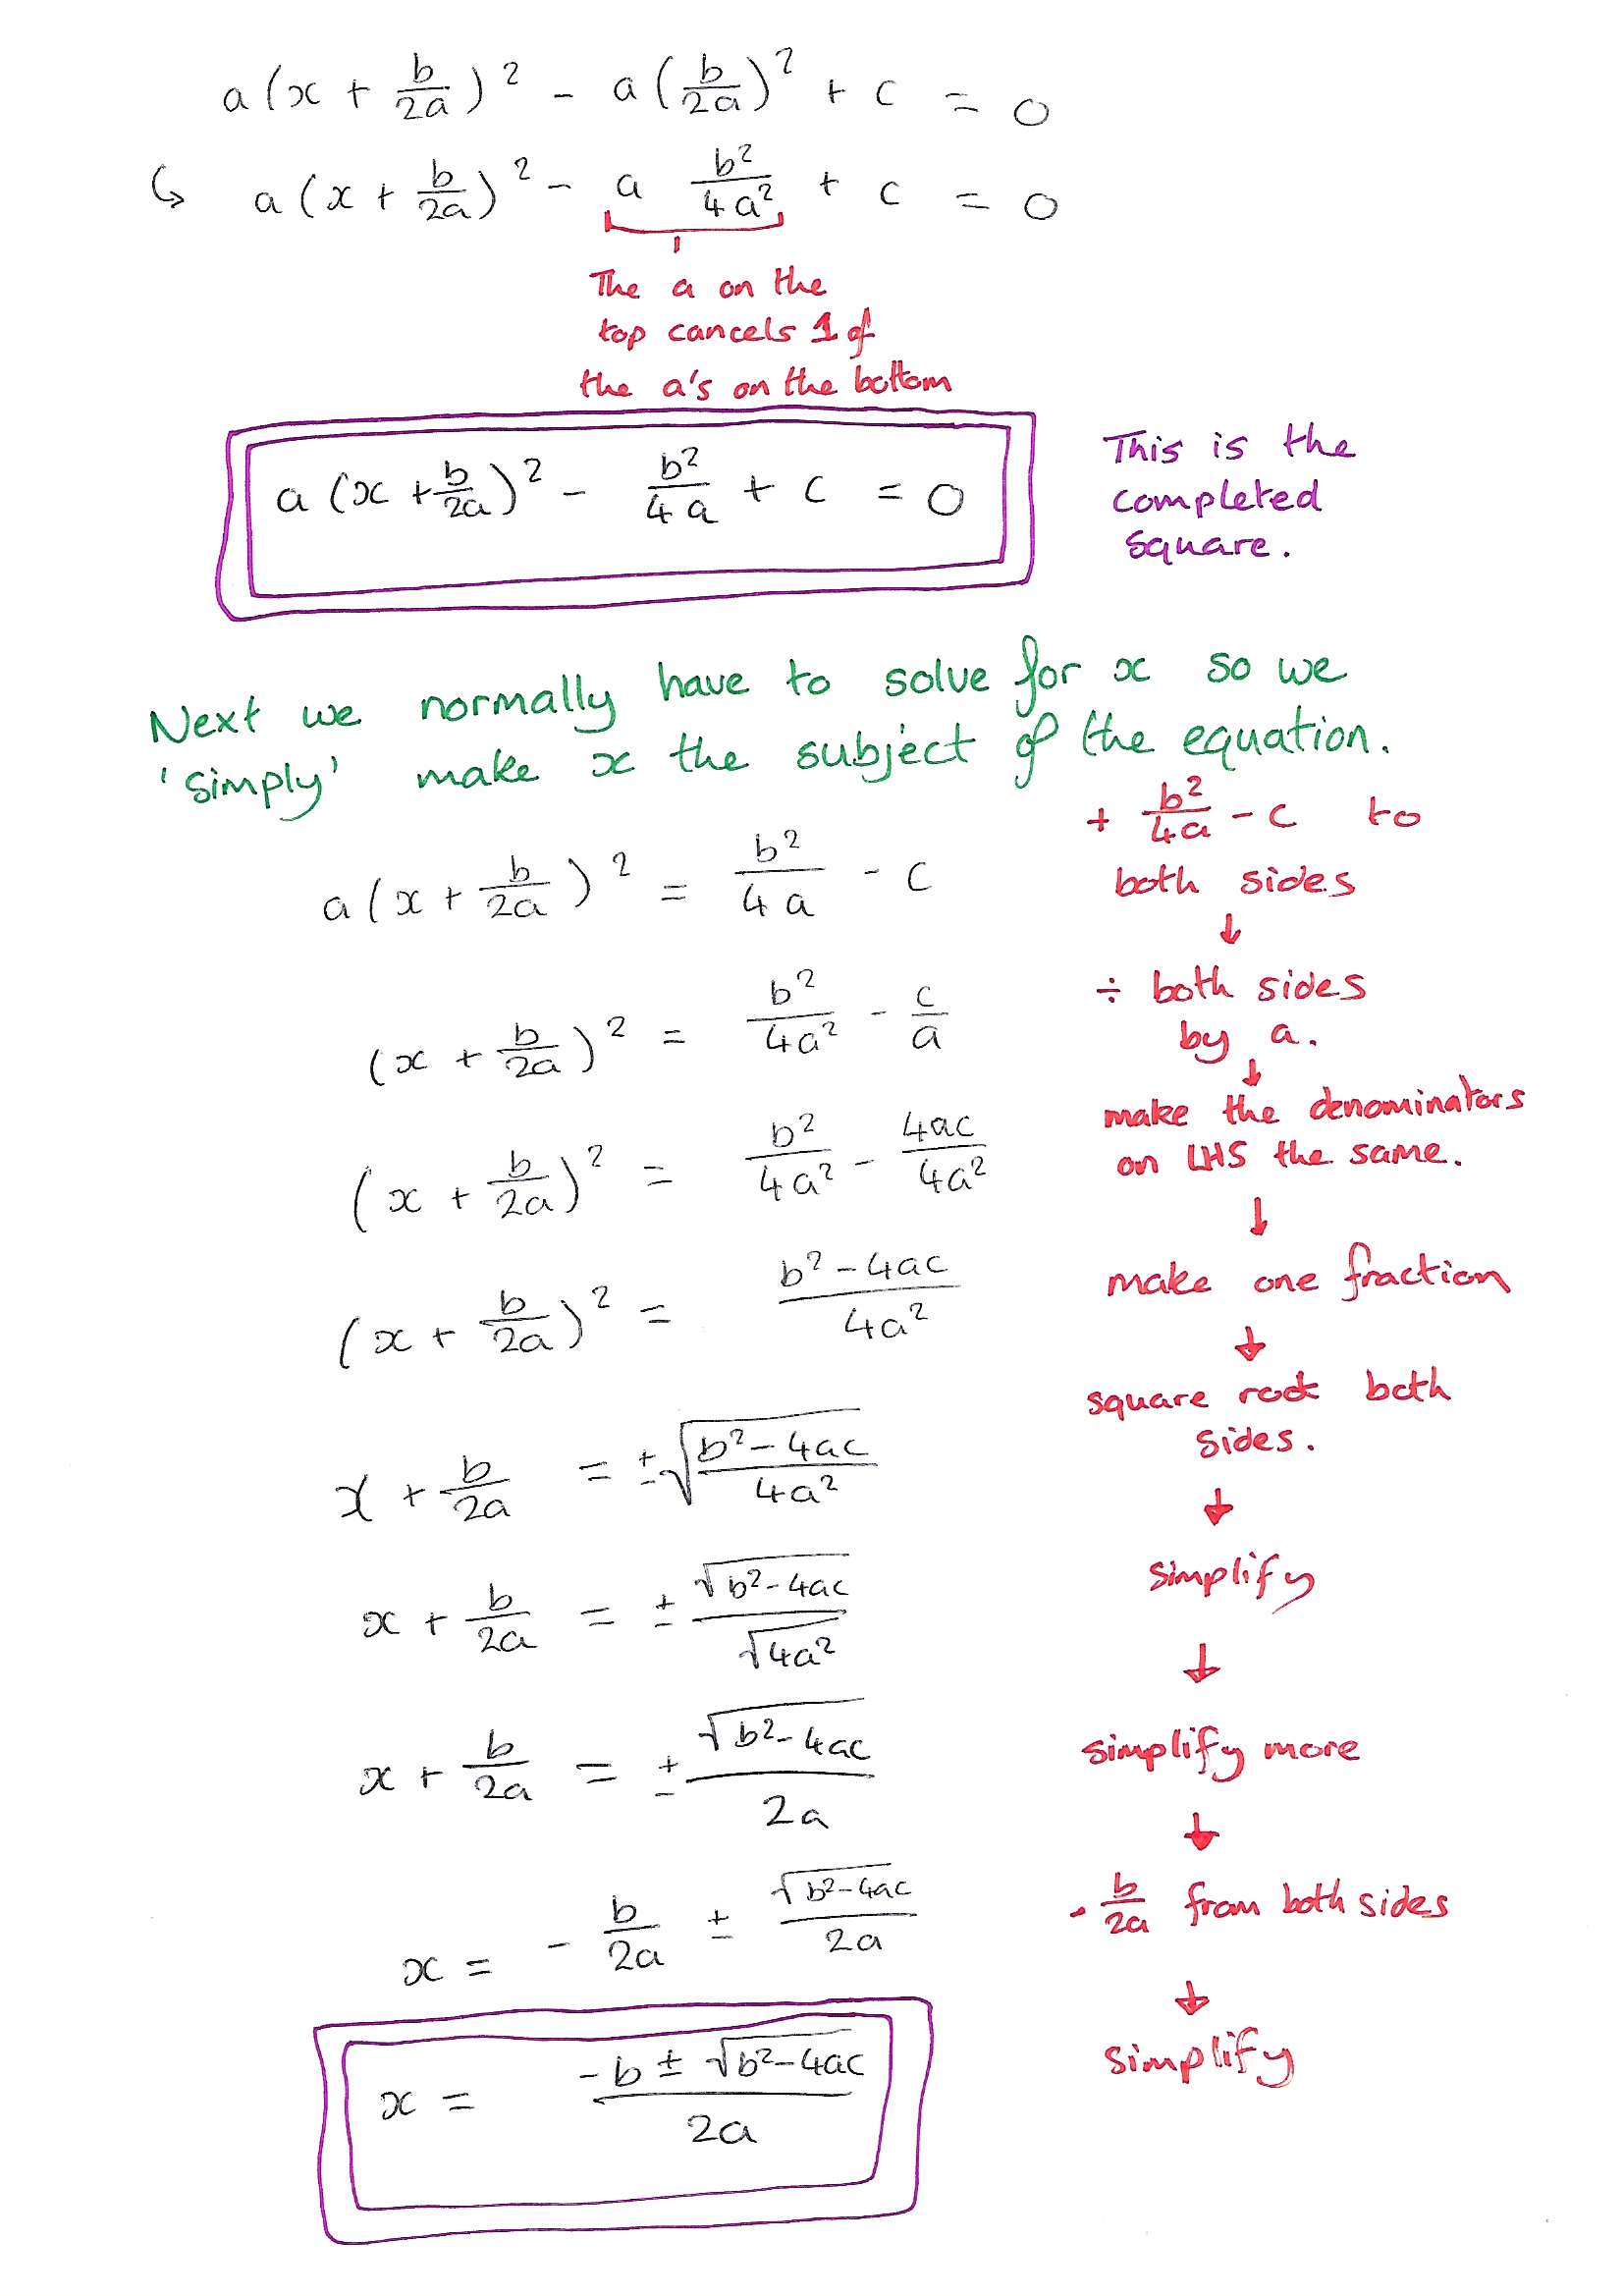 a(x + b/2a)² - a(b/2a)² + c = 0
↳ a(x + b/2a)² - a b²/4a² + c = 0
The a on the
top cancels 1 of
the a's on the bottom
a(x + b/2a)² - b²/4a + c = 0
This is the
completed
square.
Next we normally have to solve for x so we
'simply' make x the subject of the equation.
a(x + b/2a)² = b²/4a - c
+ b²/4a - c to
both sides
↓
(x + b/2a)² = b²/4a² - c/a
÷ both sides
by a.
↓
(x + b/2a)² = b²/4a² - 4ac/4a²
make the denominators
on LHS the same.
↓
(x + b/2a)² = (b² - 4ac)/4a²
make one fraction
↓
x + b/2a = ±√((b² - 4ac)/4a²)
square root both
sides.
↓
x + b/2a = ± √(b² - 4ac)/√(4a²)
simplify
↓
x + b/2a = ± √(b² - 4ac)/2a
simplify more
↓
x = - b/2a ± √(b² - 4ac)/2a
- b/2a from both sides
↓
x = (-b ± √(b² - 4ac))/2a
simplify